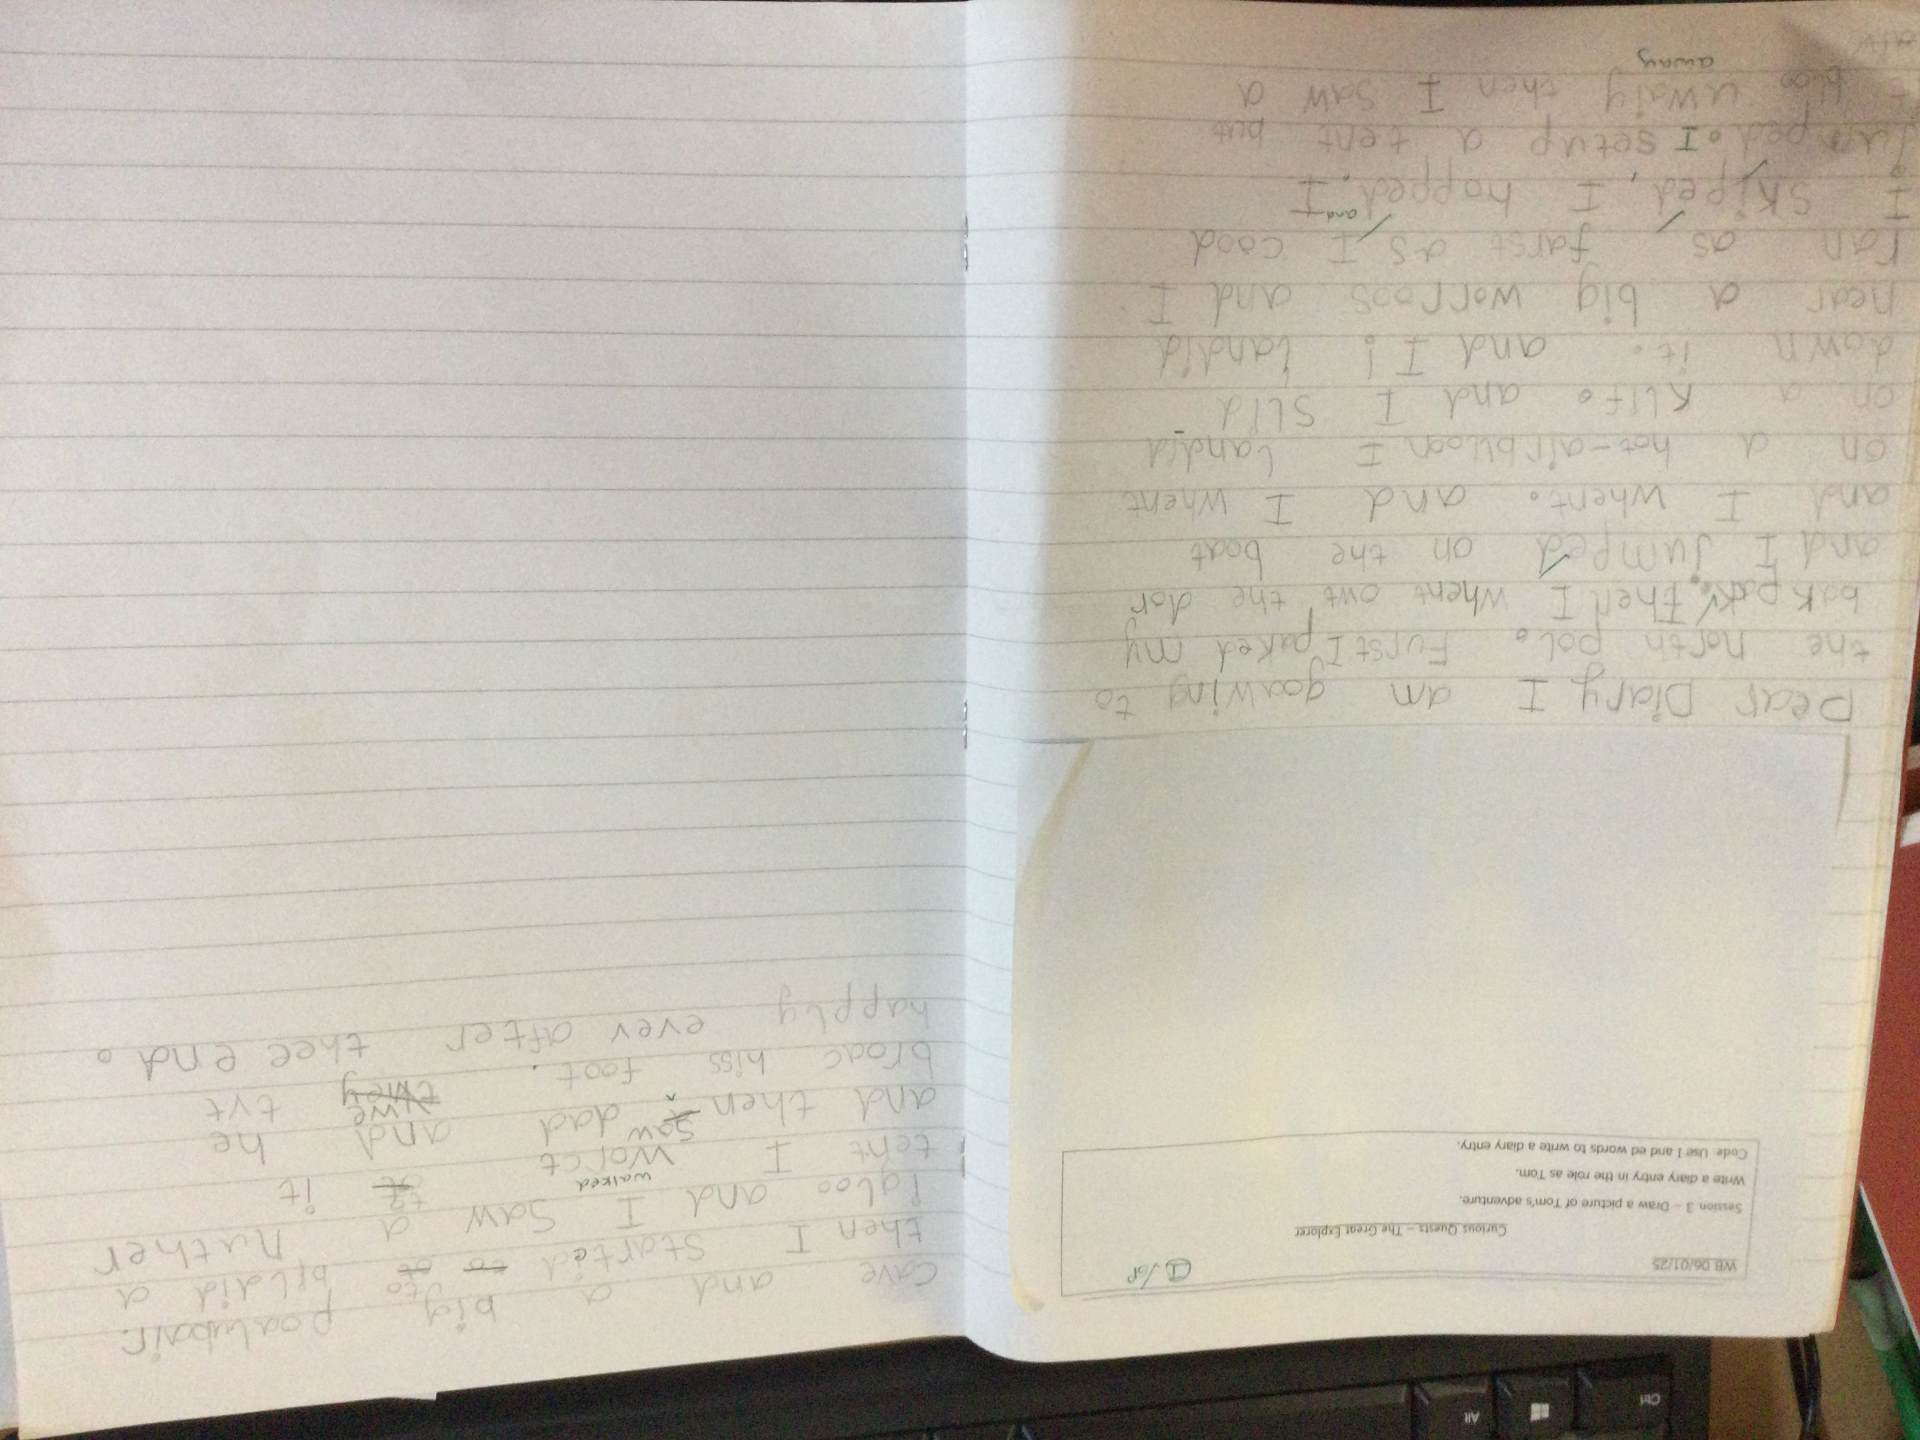 WB 06/01/25
I/OP
Curious Quests – The Great Explorer
Session 3 – Draw a picture of Tom's adventure.
Write a diary entry in the role as Tom.
Code: Use I and ed words to write a diary entry.
Dear Diary I am goawing to
the north pol. Furst I paked my
bak pak. Then I whent owt the dor
and I jumped on the boat
and I whent. and I whent
on a hot-airblloon I landid
on a klif. and I slid
down it. and I! landid
near a big worroos and I
ran as farst as I cood
I skiped, I hopped, and I
jumped. I setup a tent but
bloo uwaiy then I saw a
away
cave and a big poalubair.
then I started to bildid a
igloo and I saw a nuther
walked
tent I worct it
and then saw dad and he
we
broac hiss foot. they tvt
happly ever after thee end.
Ctrl
Alt